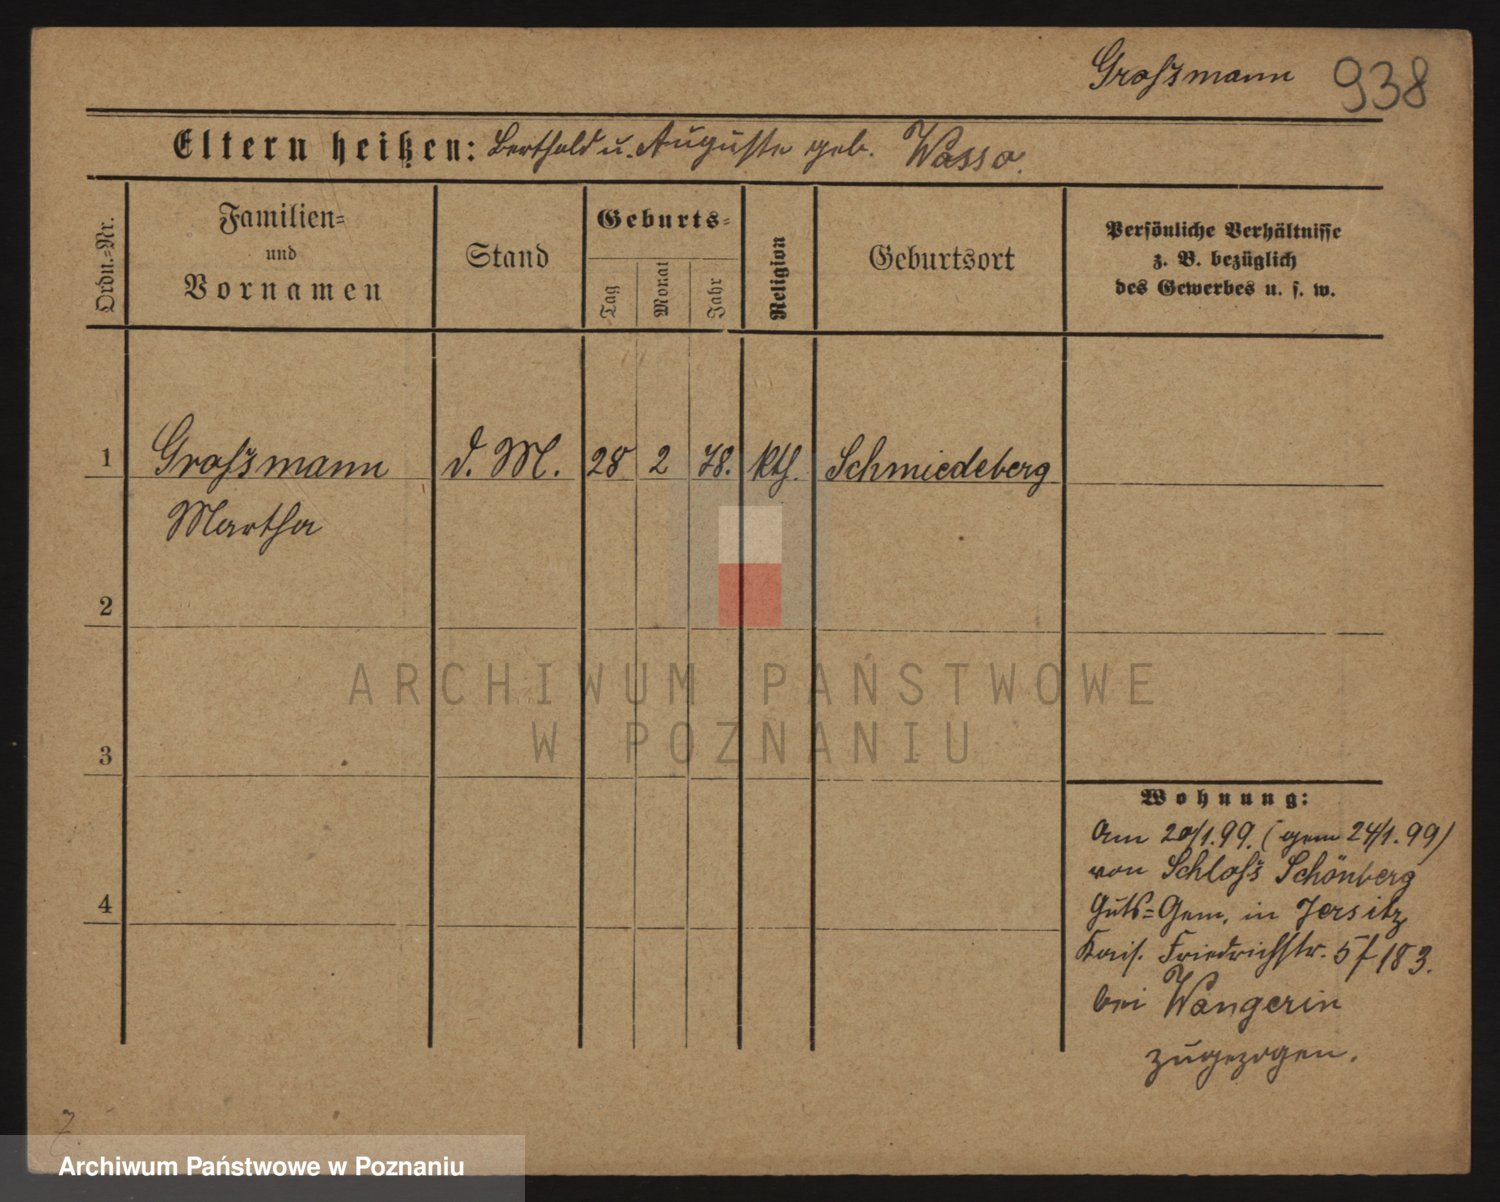 Grossmann 938
Eltern heißen: Berthold u. Auguste geb. Wassa.
Ordn.=Nr.
Familien=
und
Vornamen
Stand
Geburts=
Tag
Monat
Jahr
Religion
Geburtsort
Persönliche Verhältnisse
z. B. bezüglich
des Gewerbes u. s. w.
1 Grossmann d. M. 28 2 78. kth. Schmiedeberg
Martha
2
ARCHIWUM PAŃSTWOWE
W POZNANIU
3
Wohnung:
Am 20/1.99. (gem 24/1.99)
von Schloss Schönberg
Guts=Gem. in Jersitz
Kais. Friedrichstr. 5
bei Wangerin
zugezogen.
4
Archiwum Państwowe w Poznaniu